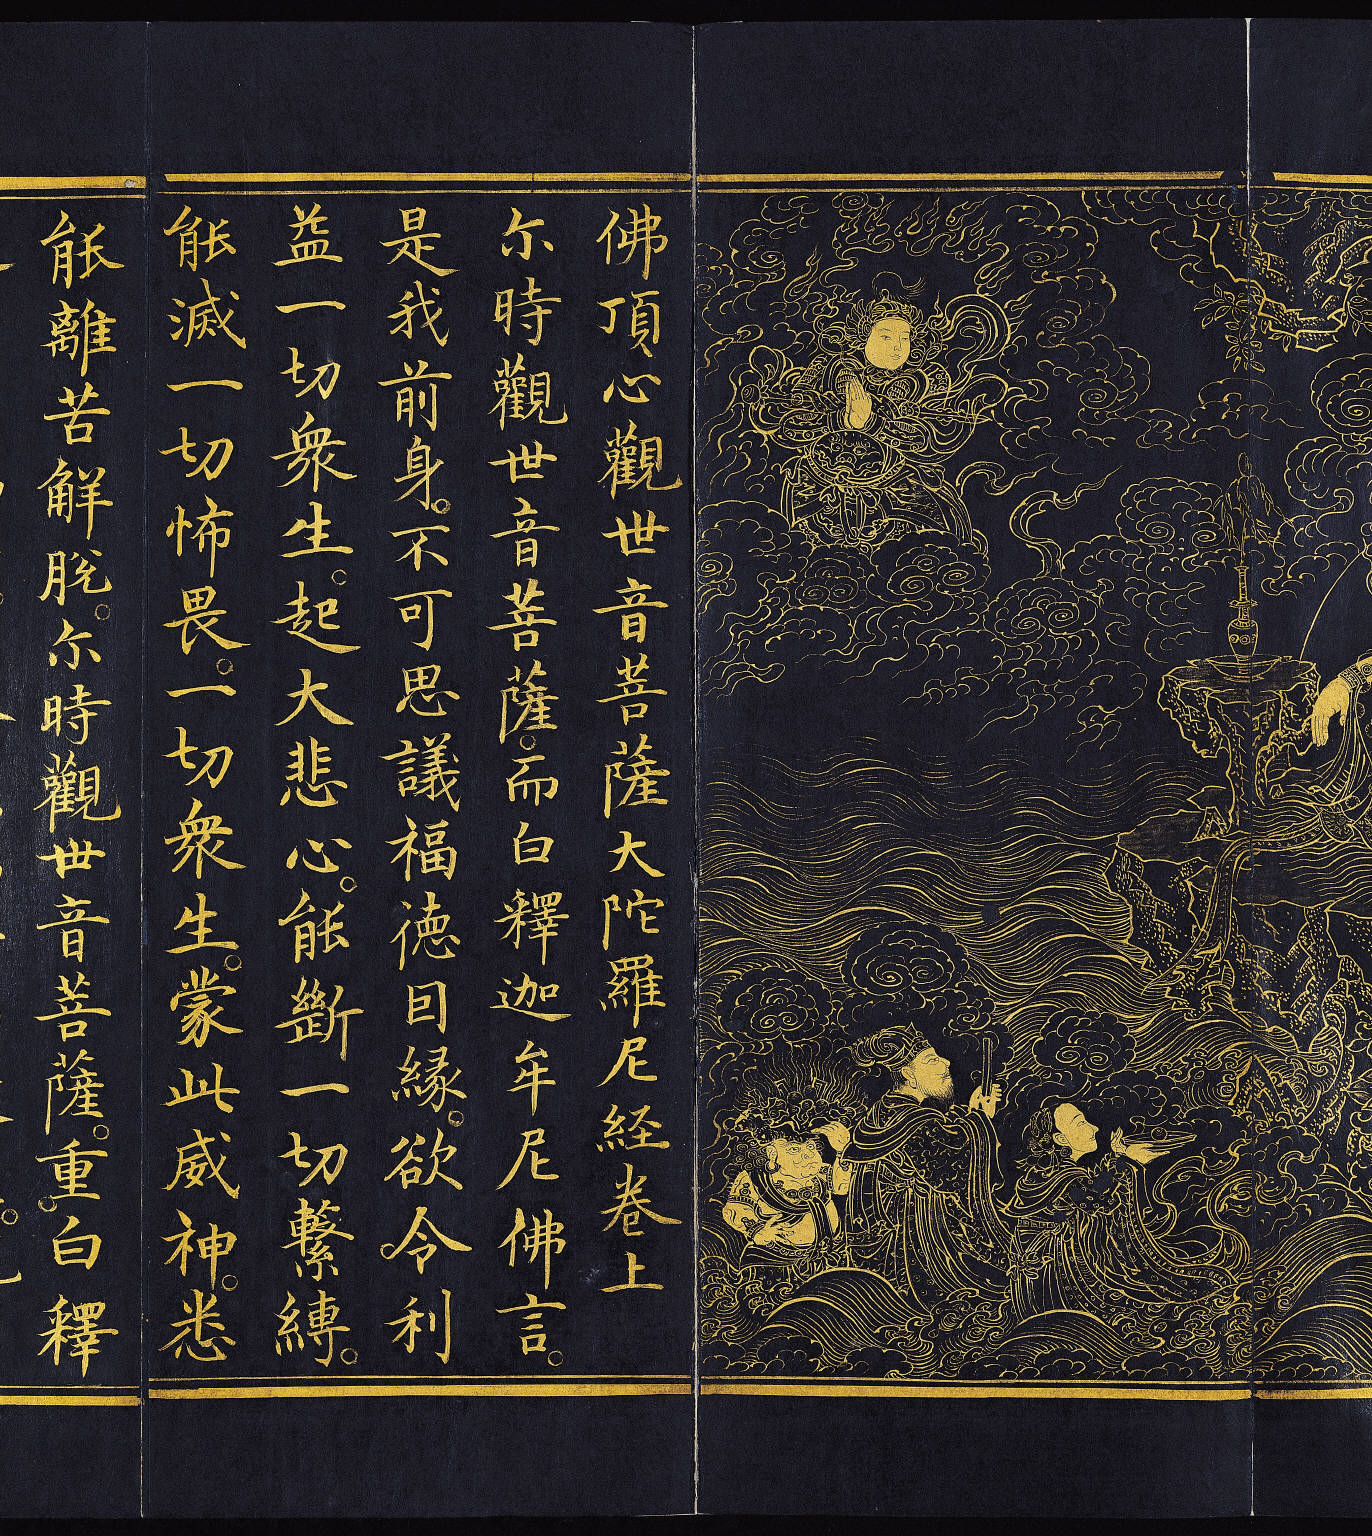 佛頂心觀世音菩薩大陀羅尼経卷上
尒時觀世音菩薩。而白釋迦牟尼佛言。
是我前身。不可思議福徳囙縁。欲令利
益一切衆生。起大悲心。能斷一切繫縛。
能滅一切怖畏。一切衆生。蒙此威神。悉
能離苦解脫。尒時觀世音菩薩。重白釋